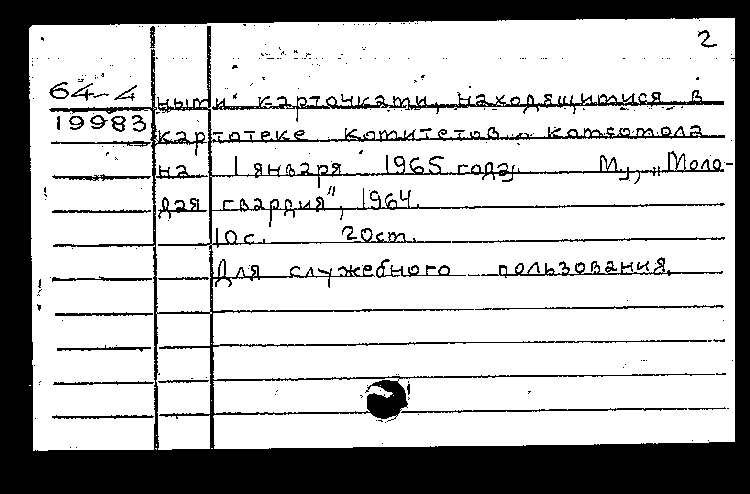 2
64-4
19983
ными карточками, находящимися в
картотеке комитетов комсомола
на 1 января 1965 года. М., „Моло-
дая гвардия", 1964.
10с. 20см.
Для служебного пользования.